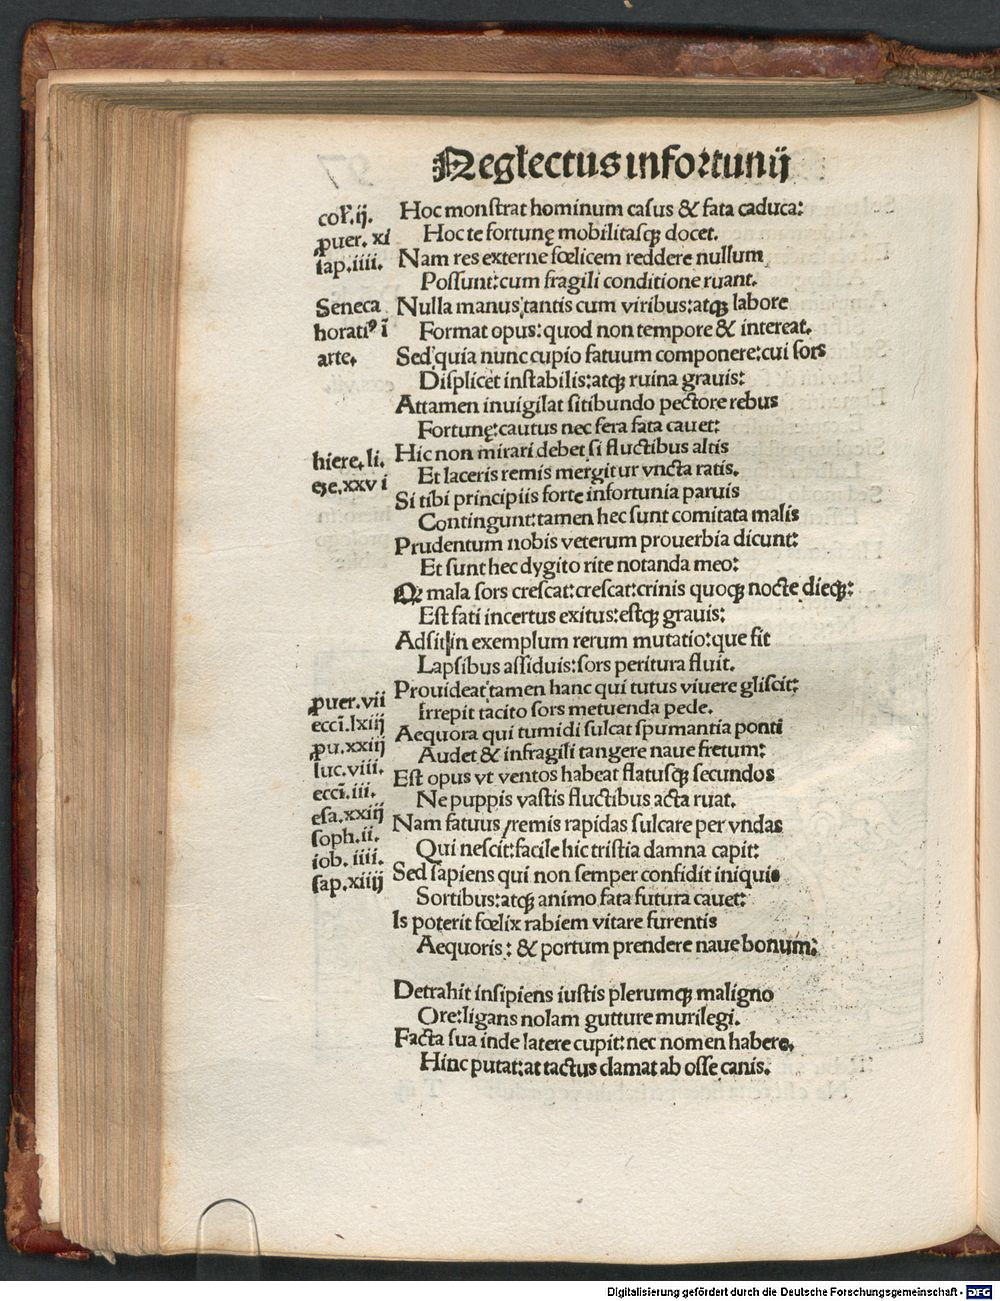 Neglectus infortunij
Hoc monstrat hominum casus & fata caduca:
Hoc te fortunę mobilitasqꝫ docet.
Nam res externe fœlicem reddere nullum
Possunt: cum fragili conditione ruant.
Nulla manus tantis cum viribus: atqꝫ labore
Format opus: quod non tempore & intereat.
Sed quia nunc cupio fatuum componere: cui sors
Displicet instabilis: atqꝫ ruina grauis:
Attamen inuigilat sitibundo pectore rebus
Fortunę: cautus nec fera fata cauet:
Hic non mirari debet si fluctibus altis
Et laceris remis mergitur vncta ratis.
Si tibi principiis forte infortunia paruis
Contingunt: tamen hec sunt comitata malis
Prudentum nobis veterum prouerbia dicunt:
Et sunt hec dygito rite notanda meo:
Qꝫ mala sors crescat: crescat: crinis quoqꝫ nocte dieqꝫ:
Est fati incertus exitus: estqꝫ grauis:
Adsit in exemplum rerum mutatio: que fit
Lapsibus assiduis: sors peritura fluit.
Prouideat tamen hanc qui tutus viuere gliscit:
Irrepit tacito sors metuenda pede.
Aequora qui tumidi sulcat spumantia ponti
Audet & infragili tangere naue fretum:
Est opus vt ventos habeat flatusqꝫ secundos
Ne puppis vastis fluctibus acta ruat.
Nam fatuus / remis rapidas sulcare per vndas
Qui nescit: facile hic tristia damna capit:
Sed sapiens qui non semper confidit iniquis
Sortibus: atqꝫ animo fata futura cauet:
Is poterit fœlix rabiem vitare furentis
Aequoris: & portum prendere naue bonum:
Detrahit insipiens iustis plerumqꝫ maligno
Ore: ligans nolam gutture murilegi.
Facta sua inde latere cupit: nec nomen habere.
Hinc putat: at tactus clamat ab osse canis.
col'. ij.
ꝓuer. xi
sap. iiii.
Seneca
horatiꝰ ī
arte.
hiere. li.
eze. xxv i
ꝓuer. vii
eccī. lxiij
ꝓu. xxiij
luc. viii.
eccī. iii.
esa. xxiij
soph. ii.
iob. iiii.
sap. xiiij
Digitalisierung gefördert durch die Deutsche Forschungsgemeinschaft - DFG